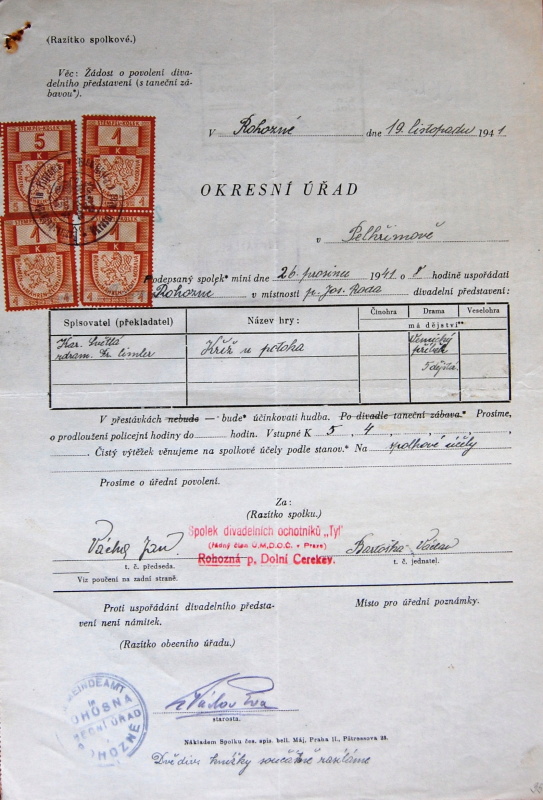 (Razítko spolkové.)
Věc: Žádost o povolení diva-
delního představení (s taneční zá-
bavou*).
V Rohozné dne 19. listopadu 1941
5 K
1 K
OKRESNÍ ÚŘAD
v Pelhřimově
Podepsaný spolek* míní dne 26. prosince 1941 o 8 hodině uspořádati
v Rohozné v místnosti p. Jos. divadelní představení:
Spisovatel (překladatel) Název hry: Činohra Drama Veselohra
má dějství**
Kar. Světlá Kříž u potoka
zdram. Dr.
5 dějstv.
V přestávkách nebude — bude* účinkovati hudba. Po divadle taneční zábava.* Prosíme,
o prodloužení policejní hodiny do hodin. Vstupné K 5, 4, , , ,
. Čistý výtěžek věnujeme na spolkové účely podle stanov.* Na spolkové účely
Prosíme o úřední povolení.
Za:
(Razítko spolku.)
Spolek divadelních ochotníků „Tyl“
(řádný člen Ú.M.D.O.Č. - Praze)
Rohozná p. Dolní Cerekev.
Jan Bartoška Václav
t. č. předseda. t. č. jednatel.
Viz poučení na zadní straně.
Proti uspořádání divadelního předsta-
vení není námitek.
Místo pro úřední poznámky.
(Razítko obecního úřadu.)
GEMEINDEAMT
in
ROHOSNA
OBECNÍ ÚŘAD
v
ROHOZNÉ
Václav
starosta.
Nákladem Spolku čes. spis. bell. Máj, Praha II., Pštrossova 28.
Dvě div. knížky současně zasíláme